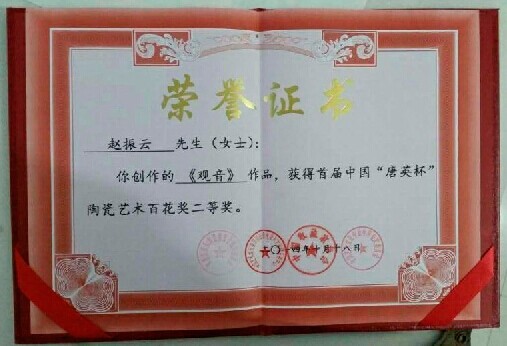 荣誉证书
赵振云 先生（女士）：
你创作的 《观音》 作品，获得首届中国“唐英杯”
陶瓷艺术百花奖二等奖。
二〇一四年十月十八日